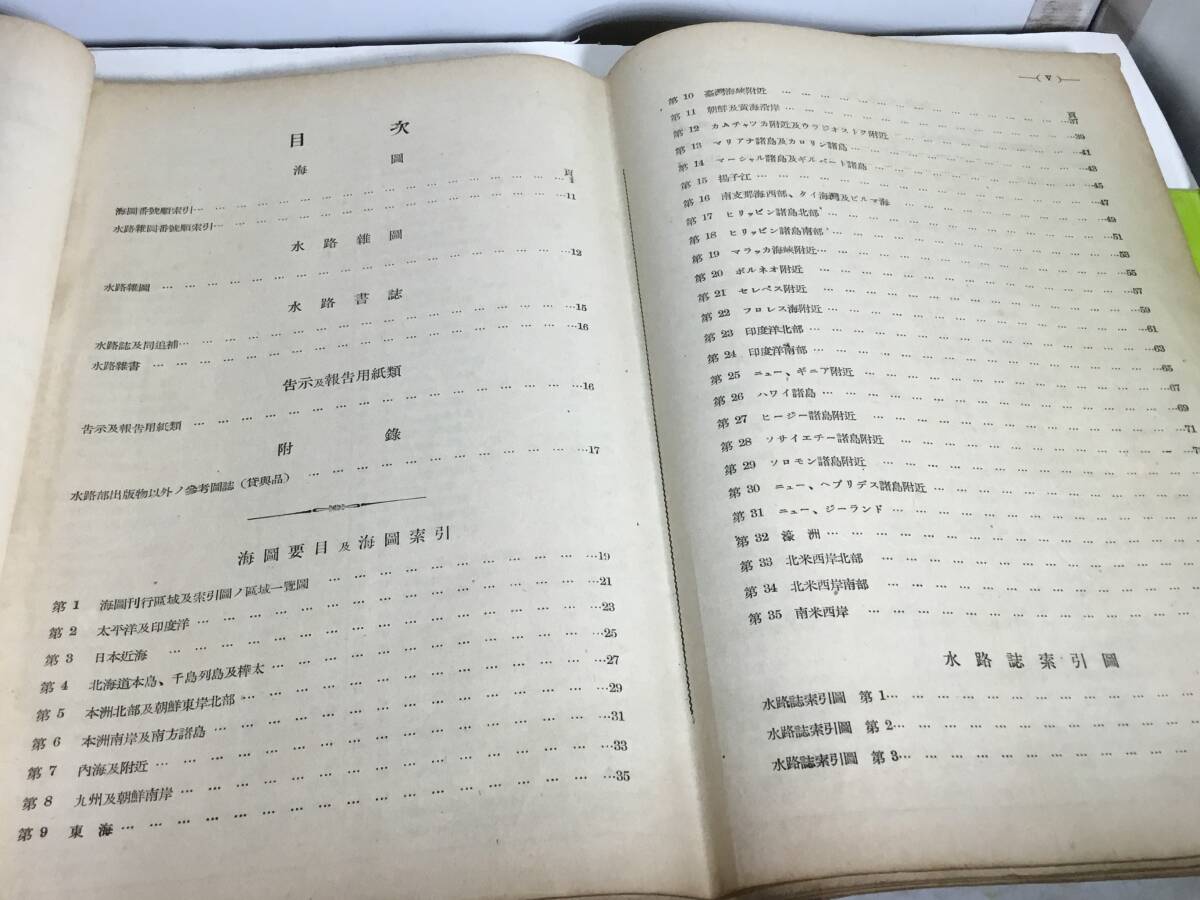 目 次
海 圖
頁
海圖番號順索引… … … … … … … … … … … … … … 1
水路雜圖番號順索引… … … … … … … … … … … … … …11
水 路 雜 圖
水路雜圖 … … … … … … … … … … … … … … …12
水 路 書 誌
水路誌及同追補… … … … … … … … … … … … … …15
水路雜書 … … … … … … … … … … … … … … …16
告示及報告用紙類
告示及報告用紙類 … … … … … … … … … … … … …16
附 錄
水路部出版物以外ノ參考圖誌(貸與品) … … … … … … … … …17
海圖要目及海圖索引
第1 海圖刊行區域及索引圖ノ區域一覽圖 … … … … … … … … … …19
第2 太平洋及印度洋 … … … … … … … … … … … … … …21
第3 日本近海 … … … … … … … … … … … … … … …23
第4 北海道本島、千島列島及樺太 … … … … … … … … … … … …25
第5 本洲北部及朝鮮東岸北部 … … … … … … … … … … … … …27
第6 本洲南岸及南方諸島 … … … … … … … … … … … … … …29
第7 內海及附近 … … … … … … … … … … … … … … …31
第8 九州及朝鮮南岸 … … … … … … … … … … … … … …33
第9 東 海 … … … … … … … … … … … … … … … …35
(V)
頁
第10 臺灣海峽附近 … … … … … … … … … … …37
第11 朝鮮及黃海沿岸 … … … … … … … … … … …39
第12 カムチャツカ附近及ウラジオストク附近 … … … … … … …41
第13 マリアナ諸島及カロリン諸島 … … … … … … … … …43
第14 マーシャル諸島及ギルバート諸島 … … … … … … … …45
第15 揚子江 … … … … … … … … … … … … …47
第16 南支那海西部、タイ海灣及ビルマ海 … … … … … … … …49
第17 ヒリッピン諸島北部 … … … … … … … … … … …51
第18 ヒリッピン諸島南部 … … … … … … … … … … …53
第19 マラッカ海峽附近 … … … … … … … … … … …55
第20 ボルネオ附近 … … … … … … … … … … … …57
第21 セレベス附近 … … … … … … … … … … … …59
第22 フロレス海附近 … … … … … … … … … … …61
第23 印度洋北部 … … … … … … … … … … … …63
第24 印度洋南部 … … … … … … … … … … … …65
第25 ニュー、ギニア附近 … … … … … … … … … …67
第26 ハワイ諸島 … … … … … … … … … … … …69
第27 ヒージー諸島附近 … … … … … … … … … … …71
第28 ソサイエチー諸島附近 … … … … … … … … … …
第29 ソロモン諸島附近 … … … … … … … … … … …
第30 ニュー、ヘブリデス諸島附近 … … … … … … … … …
第31 ニュー、ジーランド … … … … … … … … … …
第32 濠 洲 … … … … … … … … … … … … …
第33 北米西岸北部 … … … … … … … … … … …
第34 北米西岸南部 … … … … … … … … … … …
第35 南米西岸 … … … … … … … … … … … …
水路誌索引圖
水路誌索引圖 第1… … … … … … … … … …
水路誌索引圖 第2… … … … … … … … … …
水路誌索引圖 第3… … … … … … … … … …